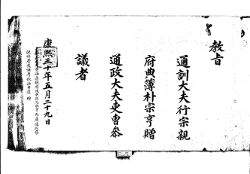 教旨
通訓大夫行宗親
府典簿朴宗亨贈
通政大夫吏曹參
議者
康熙三十年五月二十九日